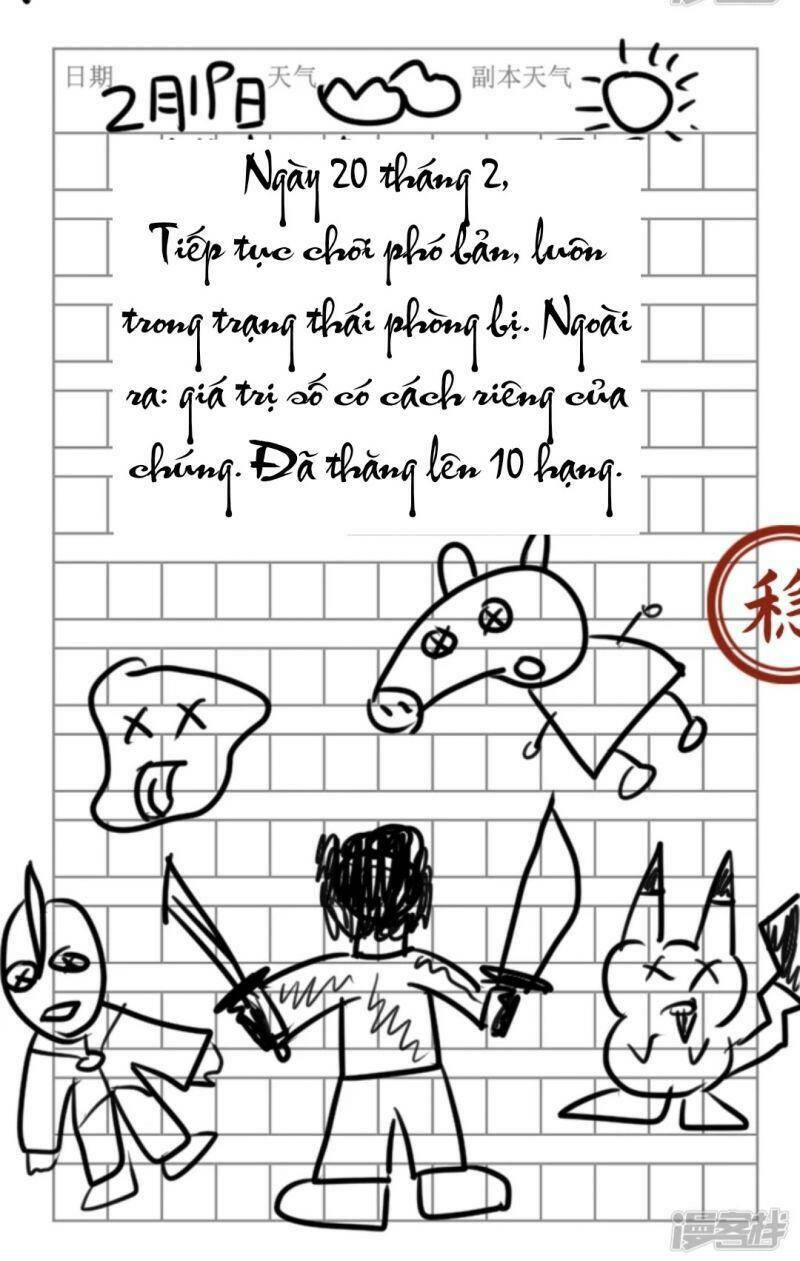 日期 2月19日 天气 副本天气
Ngày 20 tháng 2,
Tiếp tục chơi phó bản, luôn
trong trạng thái phòng bị. Ngoài
ra: giá trị số có cách riêng của
chúng. Đã thăng lên 10 hạng.
稳
漫客栈